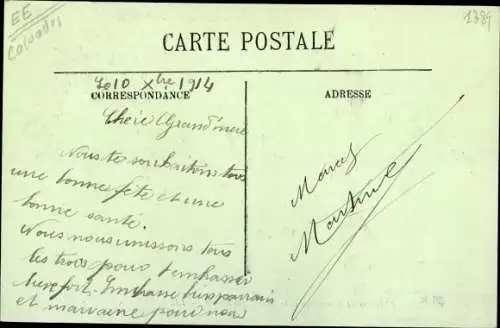 EE
Calvados
1384
CARTE POSTALE
Le 10 Xbre 1914
CORRESPONDANCE
ADRESSE
Chère Grand'mère
Nous te souhaitons tous
une bonne fête et une
bonne santé.
Nous nous unissons tous
les trois pour t'embrasser
bien fort. Embrasse bien parrain
et marraine pour nous
Marcel
Martine